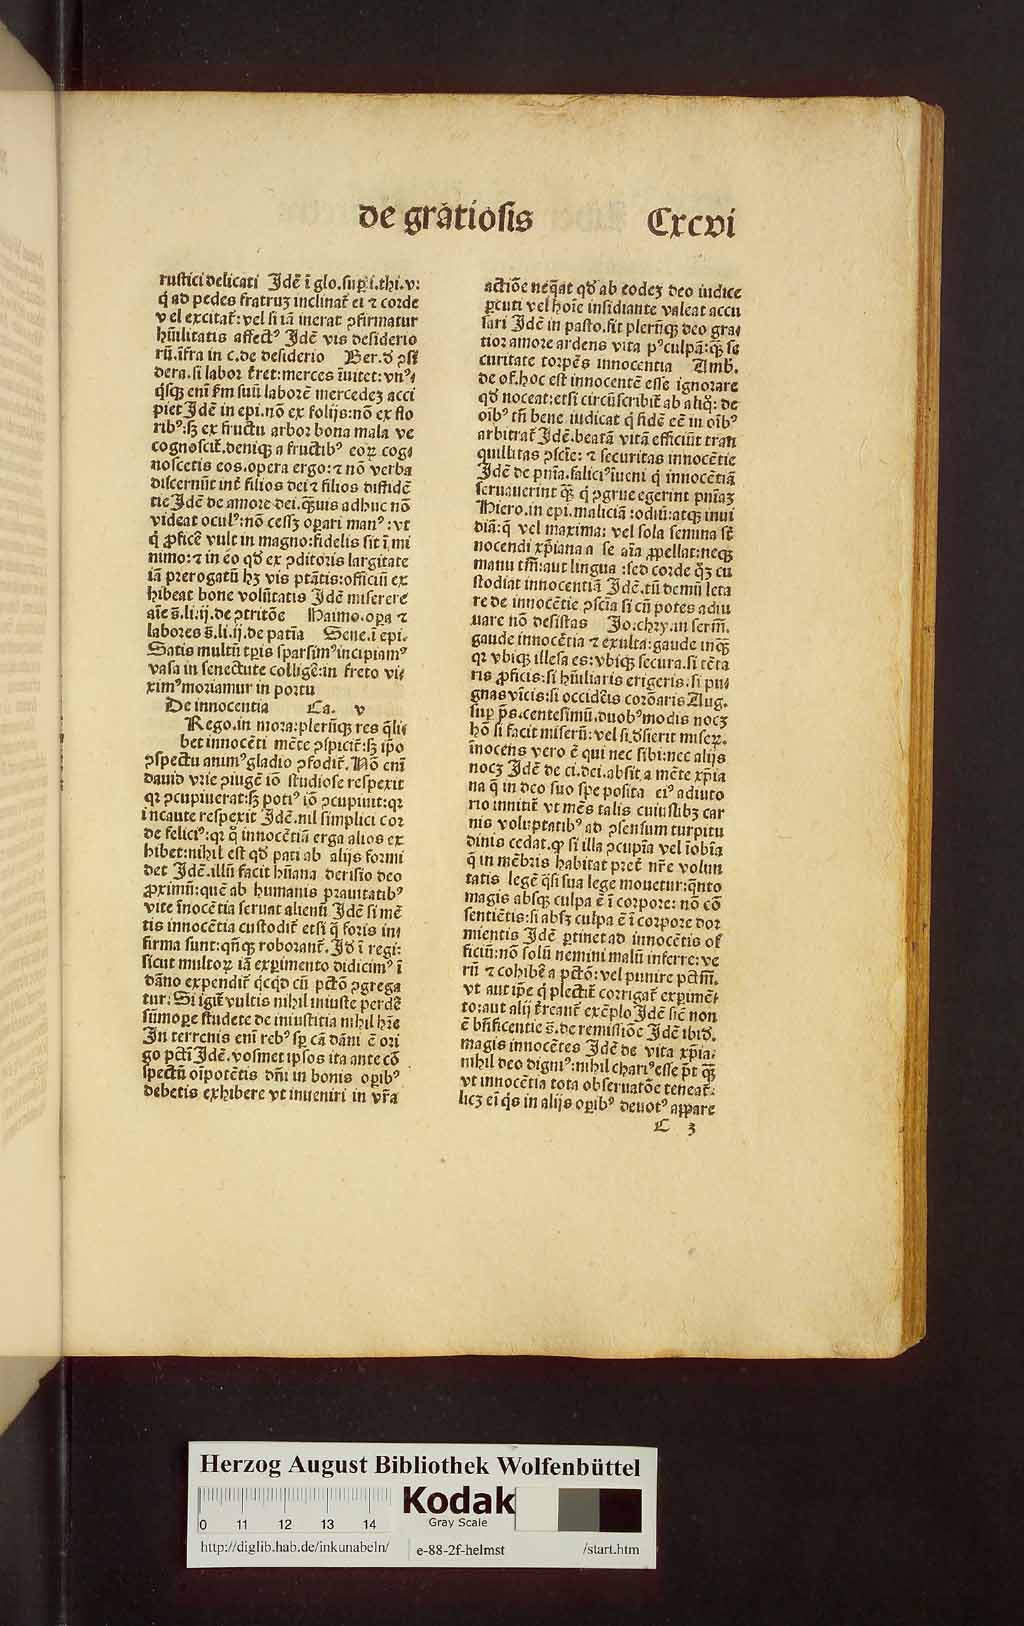 de grātiosis Cxcvi
rustici delicati Idē ī glo.suꝑ i.thi.v:
q̇ ad pedes fratruꝫ inclinat̄ ei ⁊ corde
vel excitat̄:vel si iā inerat ꝯfirmatur
hūilitatis affectꝰ Idē vis desiderio
rū.īfra in c.de desiderio Ber.d̄ ꝯsi
dera.si labor t̄ret:merces īuitet:vnꝰ⸗
q̇sqꝫ enī ẜm suū laborē mercedeꝫ acci
piet Idē in epi.nō ex folijs:nō ex flo
ribꝰ:sꝫ ex fructu arbor bona mala ve
cognoscit̄.deniqꝫ a fructibꝰ eoꝝ cog⸗
noscetis eos.opera ergo:⁊ nō verba
discernūt int̄ filios dei ⁊ filios diffidē
tie Idē de amore dei.qꝫuis adhuc nō
videat oculꝰ:nō cessꝫ oꝑari manꝰ:vt
q̇ ꝓficē vult in magno:fidelis sit ī mi
nimo:⁊ in eo qd̄ ex ꝯditoris largitate
iā prerogatū hꝫ vis ptātis:officiū ex
hibeat bone volūtatis Idē miserere
aīe s̄.li.ij.de ꝯtritōe Haimo.oꝑa ⁊
labores s̄.li.ij.de patīa Sene.ī epi.
Satis multū tꝑis sparsimꝰincipiamꝰ
vasa in senectute colligē:in freto vi⸗
ximꝰmoriamur in portu
De innocentia Ca. v
Rego.in mora:plerūqꝫ res q̄li⸗
bet innocēti mēte ꝯspicit̄:sꝫ ip̄o
ꝯspectu animꝰgladio ꝯfodit̄.Nō enī
dauid vrie ꝯiugē iō studiose respexit
qꝛ ꝯcupiuerat:sꝫ potiꝰ iō ꝯcupiuit:qꝛ
incaute respexit Idē.nil simplici cor
de feliciꝰ:qꝛ q̊ innocētiā erga alios ex
hibet:nihil est qd̄ pati ab alijs formi
det Idē.illū facit hūana derisio deo
ꝓximū:quē ab humanis prauitatibꝰ
vite īnocētia seruat alienū Idē si mē
tis innocētia custodit̄ etsi q̄ foris in⸗
firma sunt:qn̄qꝫ roborant̄.Id̄ ī regi:
sicut multoꝝ iā exꝑimento didicimꝰ ī
dāno expendit̄ q̇cqd cū pctō ꝯgrega
tur:Si igit̄ vultis nihil iniuste perdē
sūmoꝑe studete de iniustitia nihil hr̄e
In terrenis enī rebꝰ sꝑ cā dāni ē ori
go pctī Idē.vosmet ipsos ita ante cō
spectū oīpotētis dn̄i in bonis oꝑibꝰ
debetis exhibere vt inueniri in vr̄a
actiōe neq̄at qd̄ ab eodeꝫ deo iudice
ꝑcuti vel hoīe insidiante valeat accu
sari Idē in pasto.fit plerūqꝫ deo gra⸗
tior amore ardens vita pꝰculpā:qꝫ se
curitate torpēs innocentia Amb.
de of.hoc est innocentē esse ignorare
qd̄ noceat:etsi circūscribit̄ ab aliq̊: de
oībꝰ tn̄ bene iudicat q̇ fidē eē in oībꝰ
arbitrat̄ Idē.beatā vitā efficiūt tran
quillitas ꝯscīe: ⁊ securitas innocētie
Idē de pn̄ia.faliciꝰiueni q̇ innocētiā
seruauerint qꝫ q̇ ꝯgrue egerint pn̄iaꝫ
Hiero.in epi.maliciā:odiū:atqꝫ inui
diā:q̄ vel maxima: vel sola semina st̄
nocendi xp̄iana a se aīa ꝓpellat:neqꝫ
manu tm̄:aut lingua :sed corde q̊ꝫ cu
stodiat innocentiā Idē.tū demū leta
re de innocētie ꝯscīa si cū potes adiu
uare nō desistas Jo.chry.in serm̄.
gaude innocētia ⁊ exulta:gaude inqꝫ
qꝛ vbiqꝫ illesa es:vbiqꝫ secura.si tēta
ris ꝓficis:si hūiliaris erigeris.si pu⸗
gnas vīcis:si occidēis corōaris Aug.
suꝑ p̄s.centesimū.duobꝰmodis nocꝫ
hō si facit miserū: vel si.d̄serit miseꝝ.
īnocens vero ē qui nec sibi:nec alijs
nocꝫ Idē de ci.dei.absit a mēte xp̄ia
na q̄ in deo suo spe posita eiꝰ adiuto
rio innitit̄ vt mēs talis cuiuslibꝫ car
nis voluptatibꝰ ad ꝯsensum turpitu
dinis cedat.qꝫ si illa ꝯcupīa vel īobīa
q̄ in mēbris habitat pret̄ nr̄e volun
tatis legē q̄si sua lege mouetur:q̄nto
magis absqꝫ culpa ē ī corpore: nō cō
sentiētis:si absꝫ culpa ē ī corpore dor
mientis Idē ꝑtinet ad innocētis of
ficiū:nō solū nemini malū inferre:ve
rū ⁊ cohibē a pctō:vel punire pctm̄.
vt aut ip̄e q̇ plectit̄ corrigat̄ exꝑimē⸗
to:aut alij t̄reant̄ exēplo Idē sic̄ non
ē bn̄ficentie s̄.de remissiōe Idē ibid.
magis innocētes Idē de vita xp̄ia:
nihil deo digniꝰ:nihil chariꝰesse p̄t qꝫ
vt innocētia tota obseruatōe teneat̄:
licꝫ eī q̇s in alijs oꝑibꝰ deuotꝰ appare
C 3
Herzog August Bibliothek Wolfenbüttel
Kodak
Gray Scale
0 11 12 13 14
http://diglib.hab.de/inkunabeln/ e-88-2f-helmst /start.htm